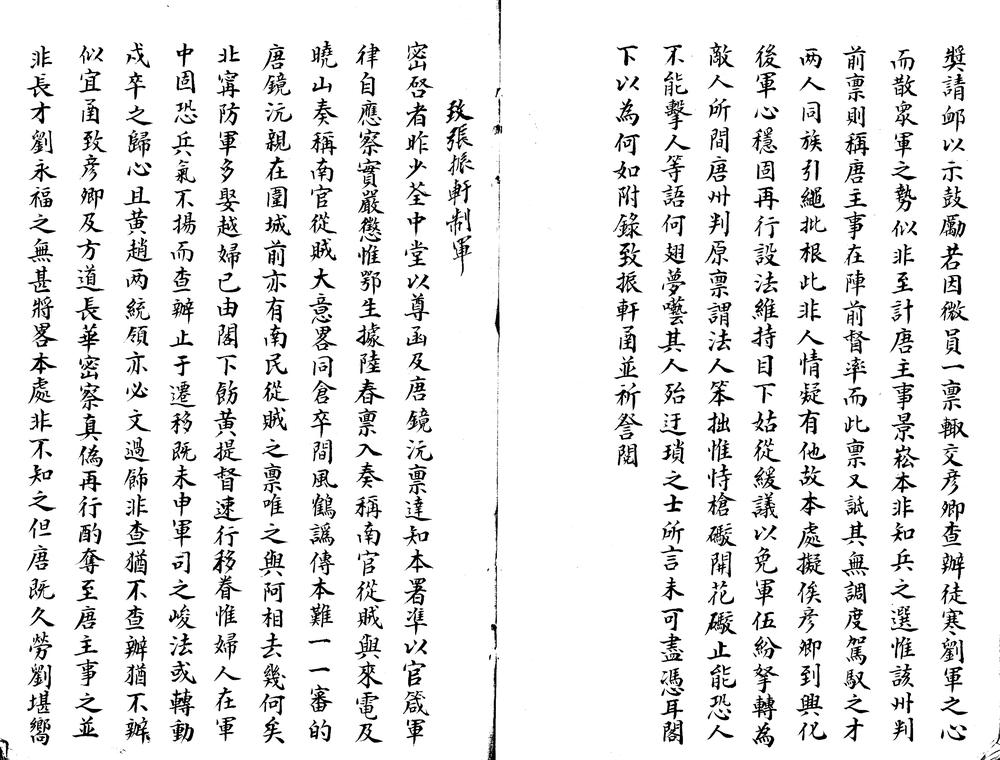 獎請邮以示鼓勵若因微員一禀輙交彦卿查辦徒寒劉軍之心
而散衆軍之勢似非至計唐主事景崧本非知兵之選惟該州判
前禀則稱唐主事在陣前督率而此禀又詆其無調度駕馭之才
两人同族引繩批根此非人情疑有他故本處擬俟彦卿到興化
後軍心穩固再行設法維持目下姑從緩議以免軍伍紛拏轉為
敵人所間唐州判原禀謂法人笨拙惟恃槍礮開花礮止能恐人
不能擊人等語何翅夢囈其人殆迂瑣之士所言未可盡憑耳閣
下以為何如附錄致振軒函並祈詧閱
致張振軒制軍
密啓者昨少荃中堂以尊函及唐鏡沅禀達知本署準以官箴軍
律自應察實嚴懲惟鄂生據陸春禀入奏稱南官從賊與來電及
曉山奏稱南官從賊大意畧同倉卒間風鶴譌傳本難一一審的
唐鏡沅親在圍城前亦有南民從賊之禀唯之與阿相去幾何矣
北甯防軍多娶越婦已由閣下飭黄提督速行移眷惟婦人在軍
中固恐兵氣不揚而查辦止于遷移既未申軍司之峻法或轉動
戍卒之歸心且黄趙两統領亦必文過飾非查猶不查辦猶不辦
似宜函致彦卿及方道長華密察真偽再行酌奪至唐主事之並
非長才劉永福之無甚將畧本處非不知之但唐既久勞劉堪嚮